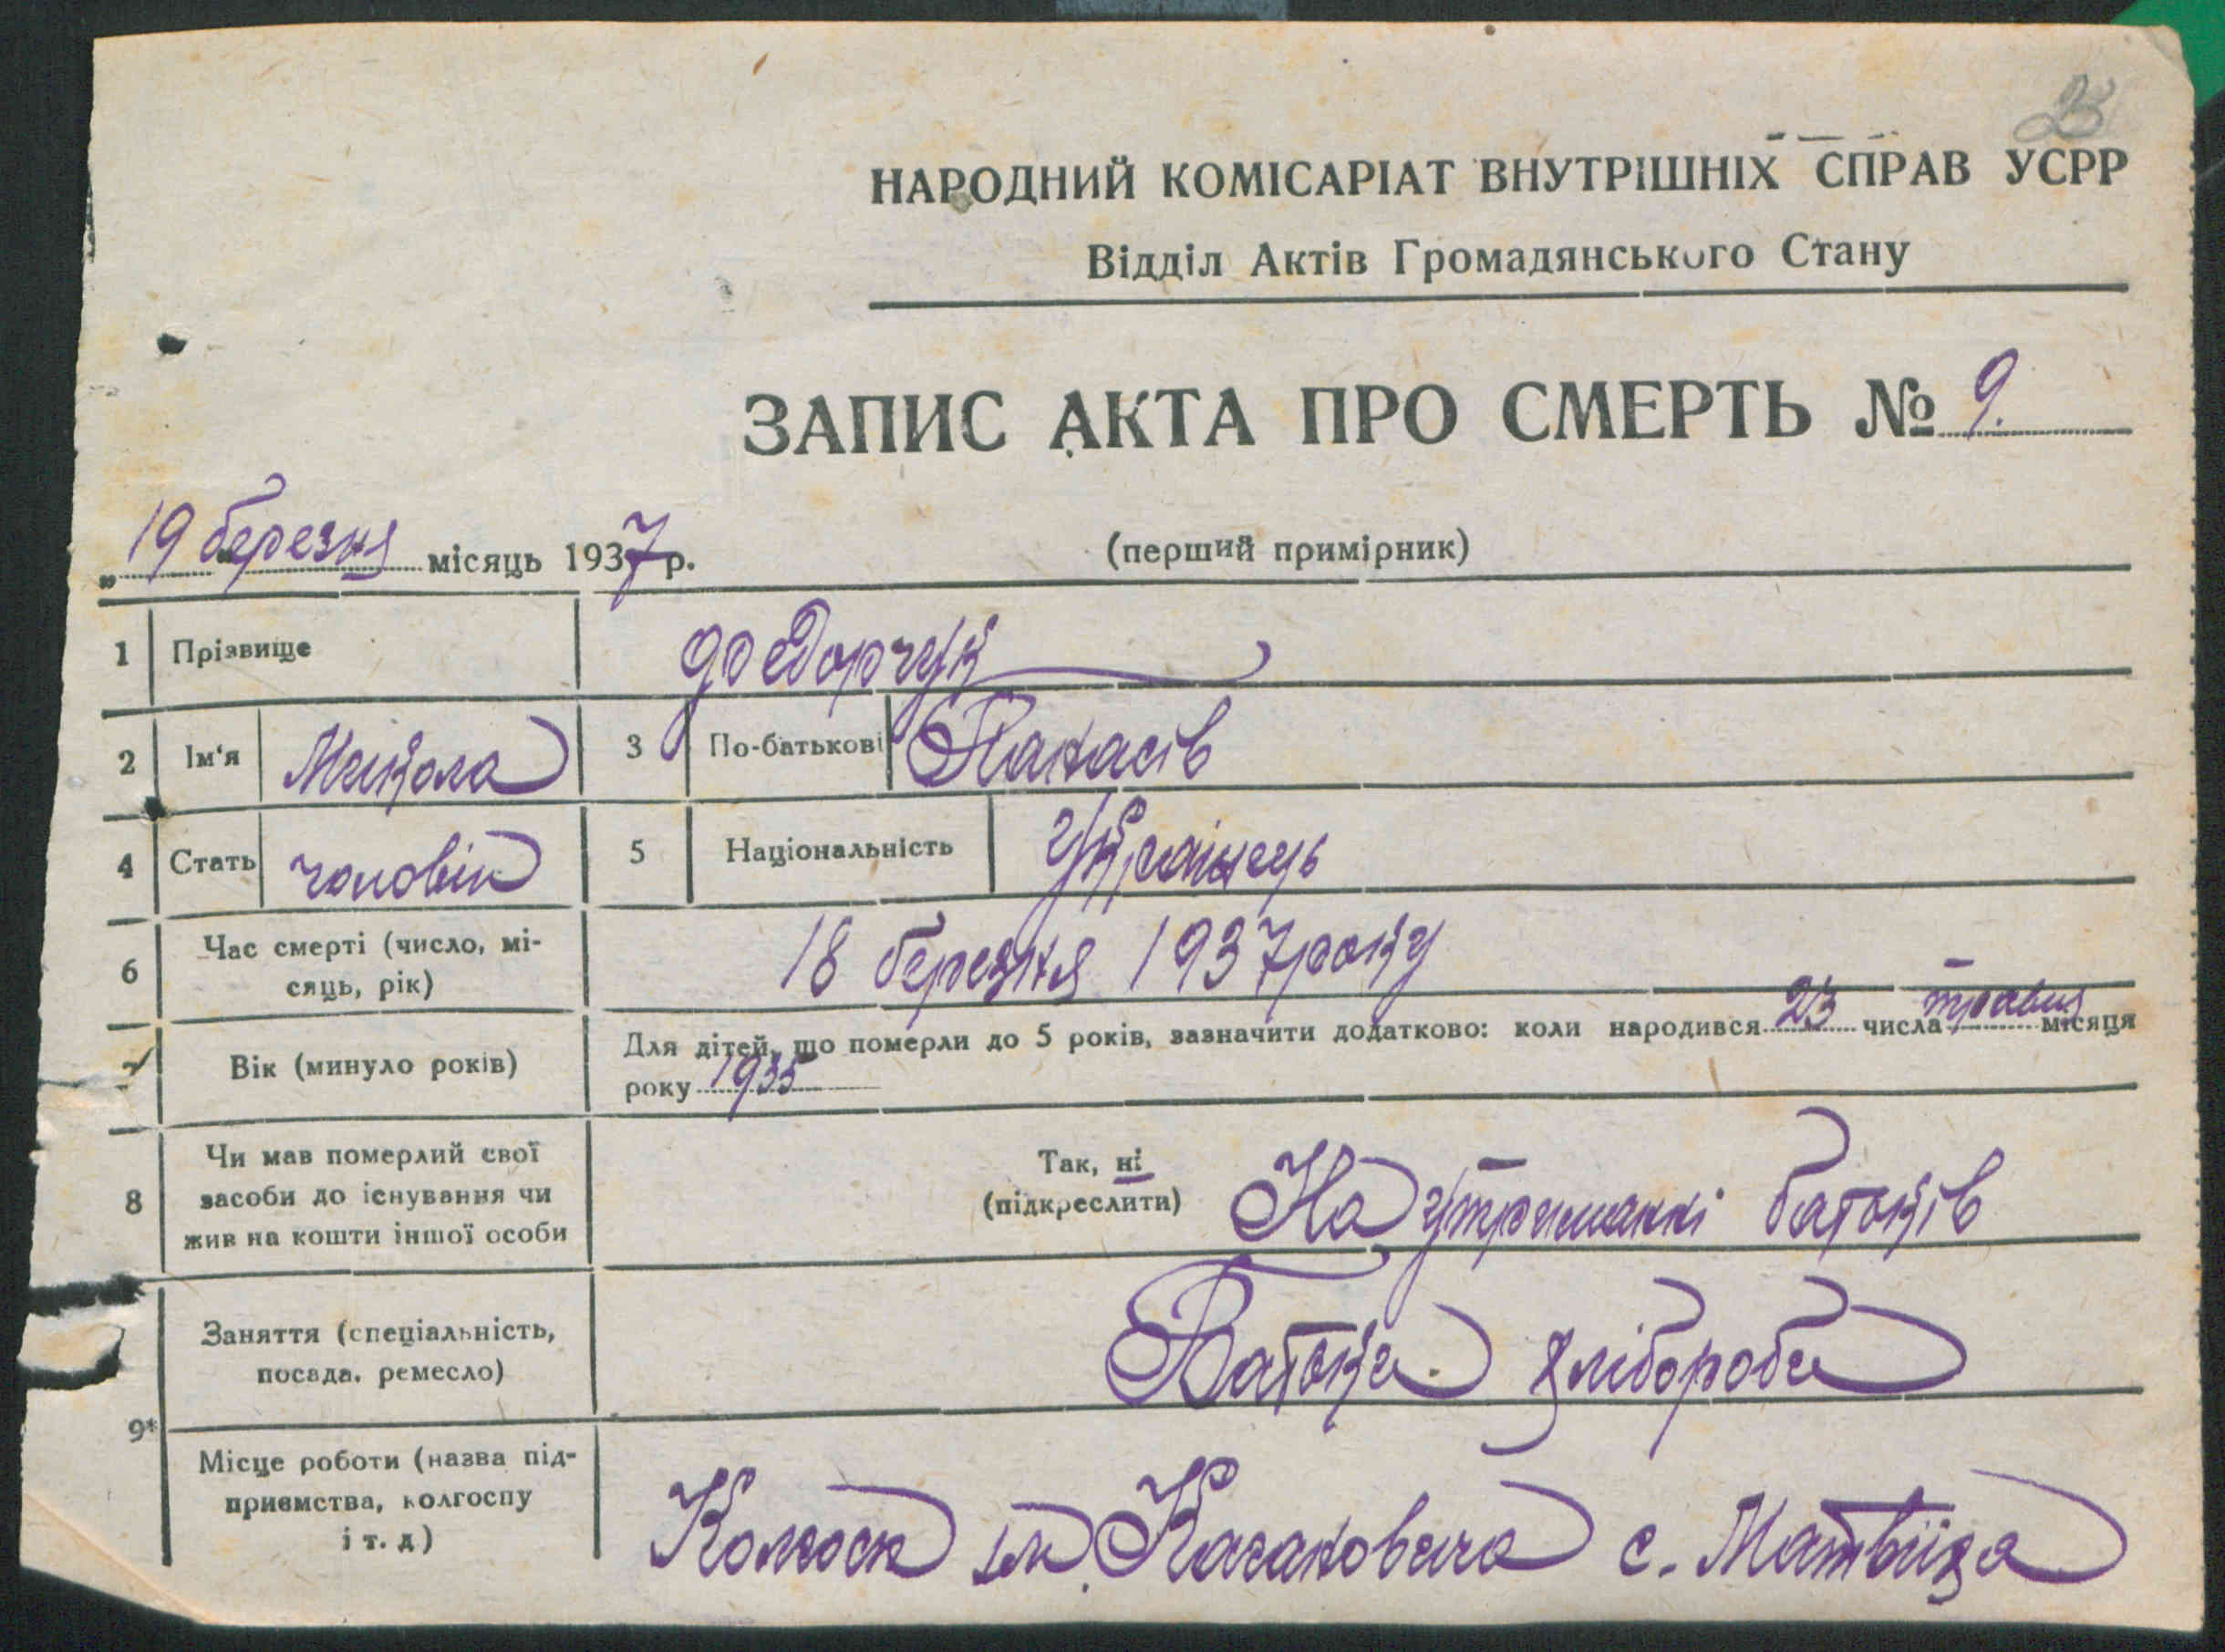 23
НАРОДНИЙ КОМІСАРІАТ ВНУТРІШНІХ СПРАВ УСРР
Відділ Актів Громадянського Стану
ЗАПИС АКТА ПРО СМЕРТЬ № 9.
„19" березня місяць 1937 р.
(перший примірник)
1 Прізвище Федорчук
2 Ім'я Микола 3 По-батькові Панасів
4 Стать чоловік 5 Національність Українець
6 Час смерті (число, мі-
сяць, рік) 18 березня 1937 року
7 Вік (минуло років) Для дітей, що померли до 5 років, зазначити додатково: коли народився 23 числа травня місяця
року 1935
8 Чи мав померлий свої
засоби до існування чи
жив на кошти іншої особи
Так, ні
(підкреслити) На утриманні батьків
9*
Заняття (спеціальність,
посада, ремесло) Батьки хлібороби
Місце роботи (назва під-
приємства, колгоспу
і т. д) Колгосп ім. Кагановича с. Матвіїха